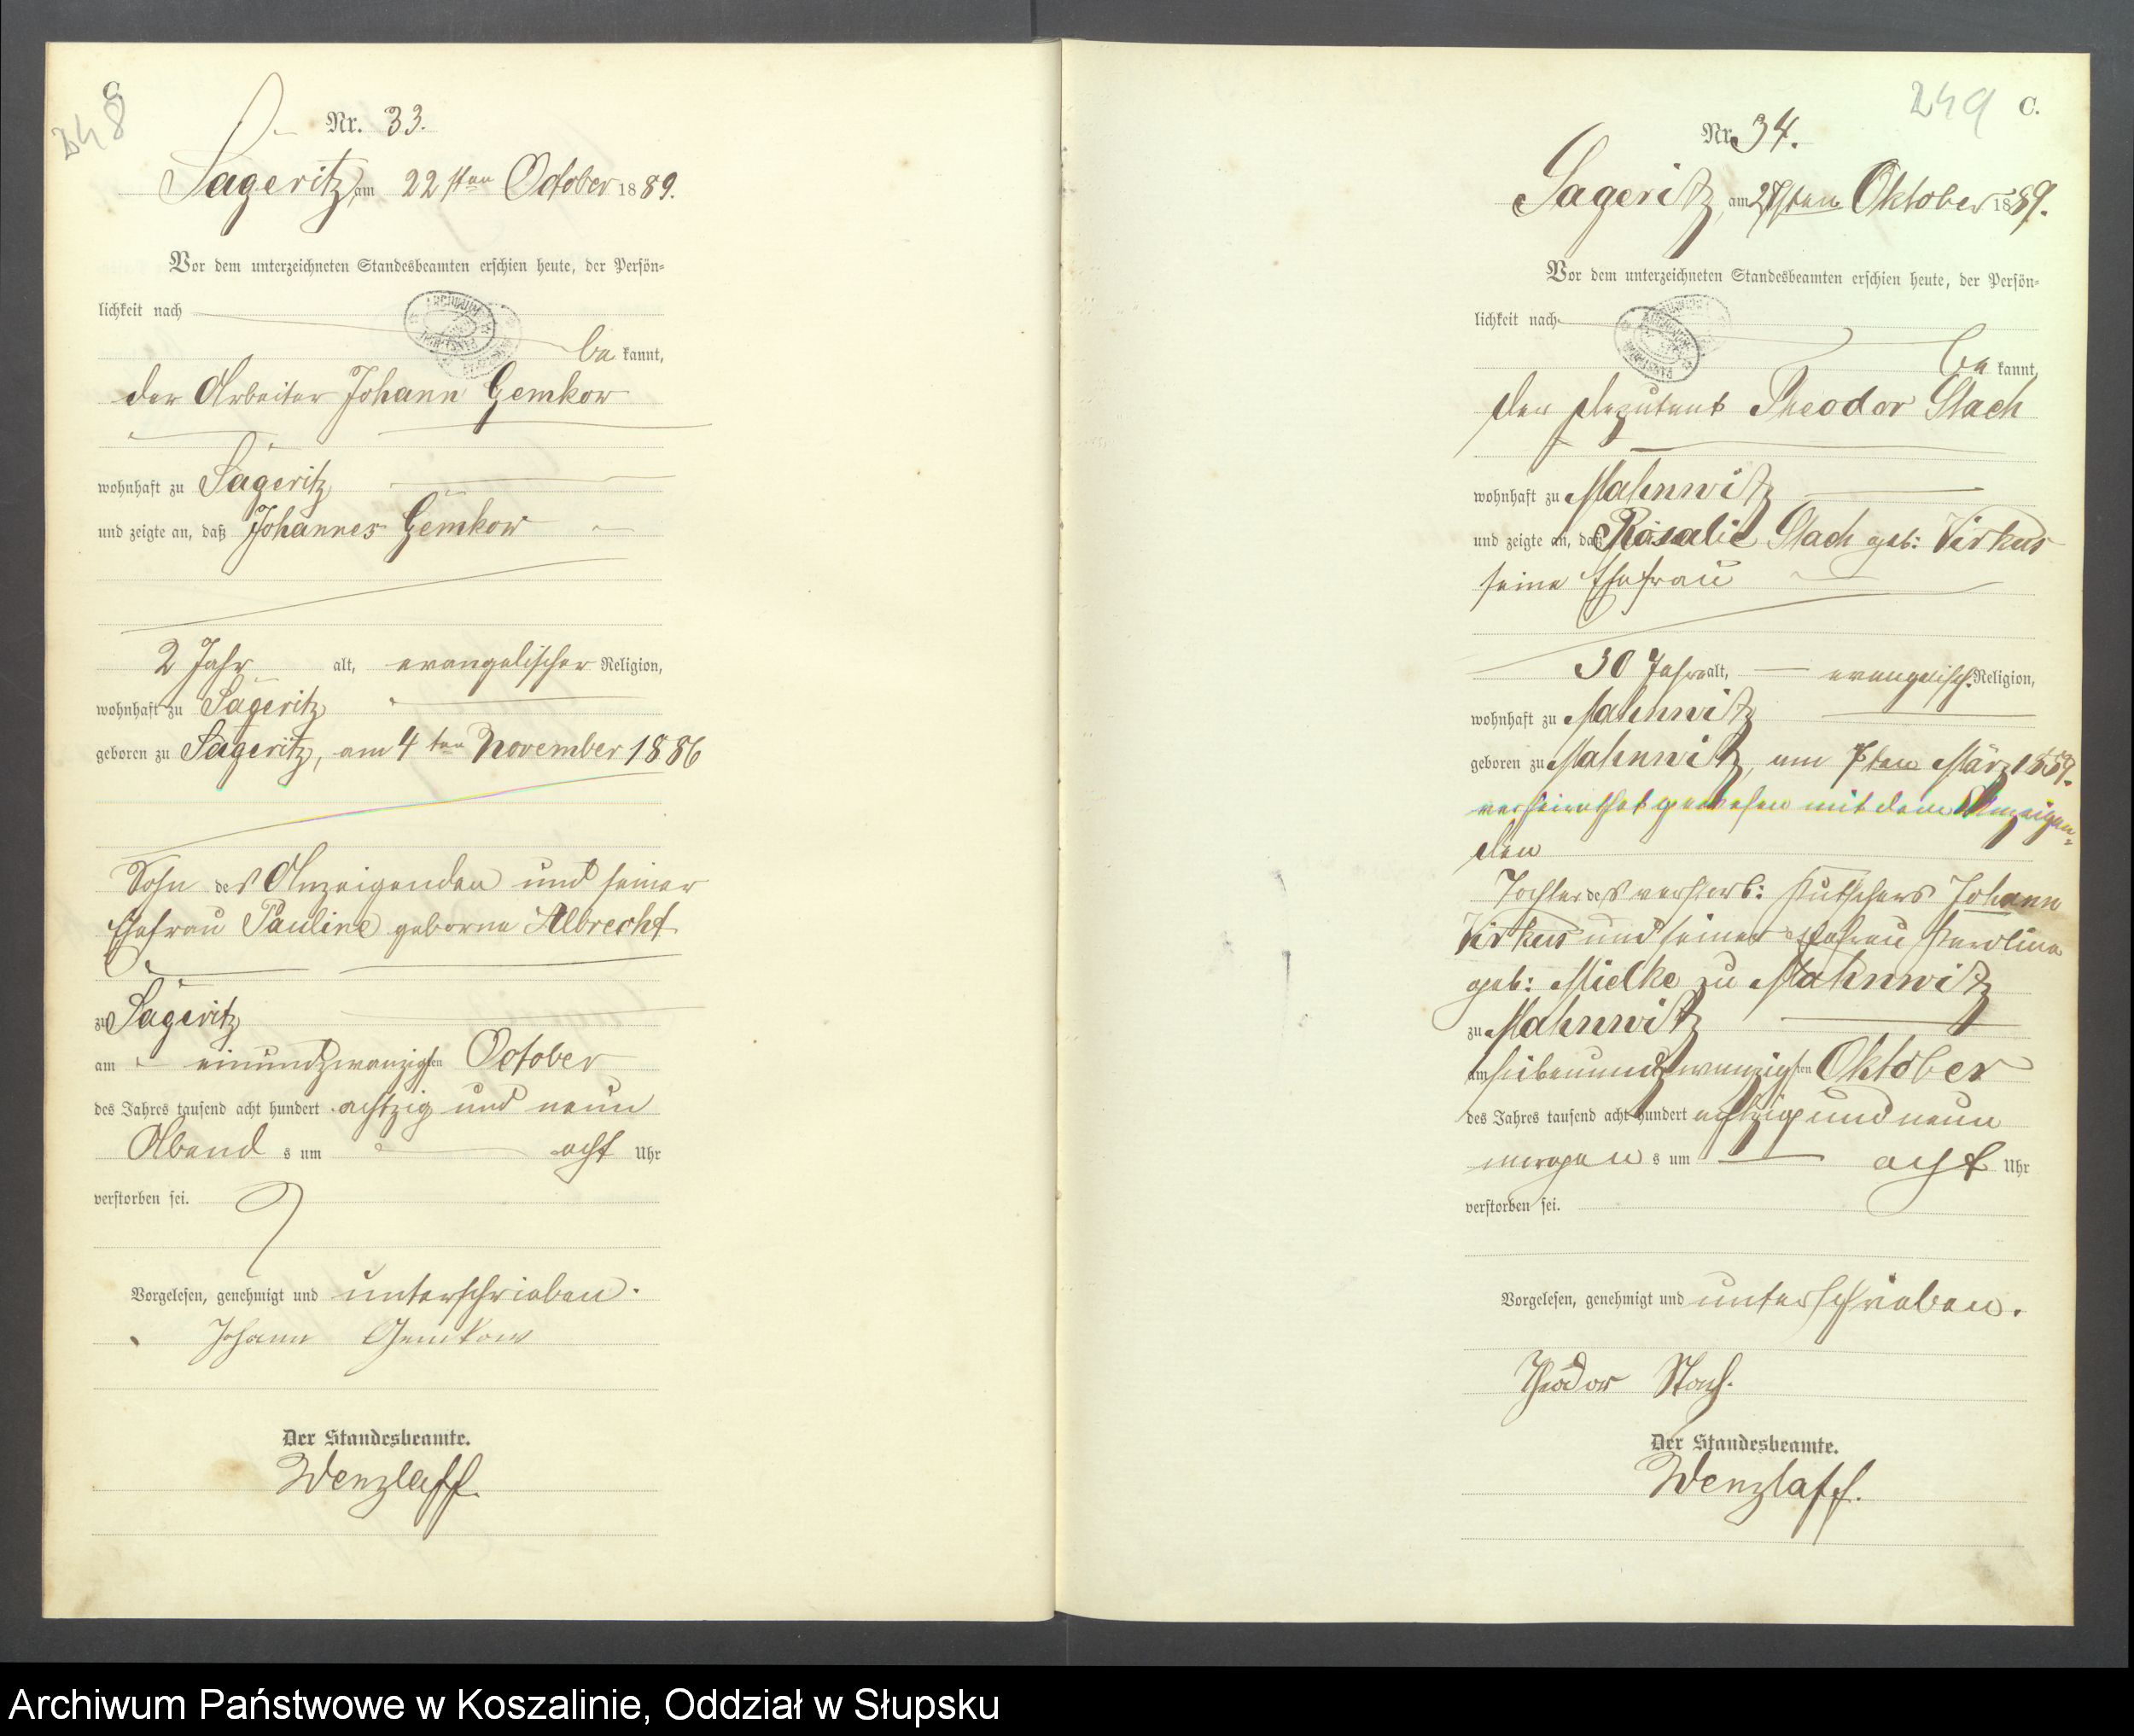 C.
248
Nr. 33.
Sageritz, am 22 sten October 1889.
Vor dem unterzeichneten Standesbeamten erschien heute, der Persön-
lichkeit nach
be kannt,
der Arbeiter Johann Gemkow
wohnhaft zu Sageritz
und zeigte an, daß Johannes Gemkow
2 Jahr alt, evangelischer Religion,
wohnhaft zu Sageritz
geboren zu Sageritz, am 4 ten November 1886
Sohn des Anzeigenden und seiner
Ehefrau Pauline geborne Albrecht
zu Sageritz
am einundzwanzigsten October
des Jahres tausend acht hundert achtzig und neun
Abend s um acht Uhr
verstorben sei.
Vorgelesen, genehmigt und unterschrieben.
Johann Gemkow
Der Standesbeamte.
Wenzlaff.
249 C.
Nr. 34.
Sageritz, am 27sten Oktober 1889.
Vor dem unterzeichneten Standesbeamten erschien heute, der Persön-
lichkeit nach
be kannt,
der Deputant Theodor Stach
wohnhaft zu Mahnwitz
und zeigte an, daß Rosalie Stach geb: Virkus
seine Ehefrau
30 Jahr alt, evangelisch. Religion,
wohnhaft zu Mahnwitz
geboren zu Mahnwitz, am ten März 1859.
verheirathet gewesen mit dem Anzeigen-
den
Tochter des verstorb: Kutschers Johann
Virkus und seiner Ehefrau Karoline
geb: Mielke zu Mahnwitz
zu Mahnwitz
am siebenundzwanzigsten Oktober
des Jahres tausend acht hundert achtzig und neun
morgen s um acht Uhr
verstorben sei.
Vorgelesen, genehmigt und unterschrieben.
Theodor Stach.
Der Standesbeamte.
Wenzlaff.
Archiwum Państwowe w Koszalinie, Oddział w Słupsku